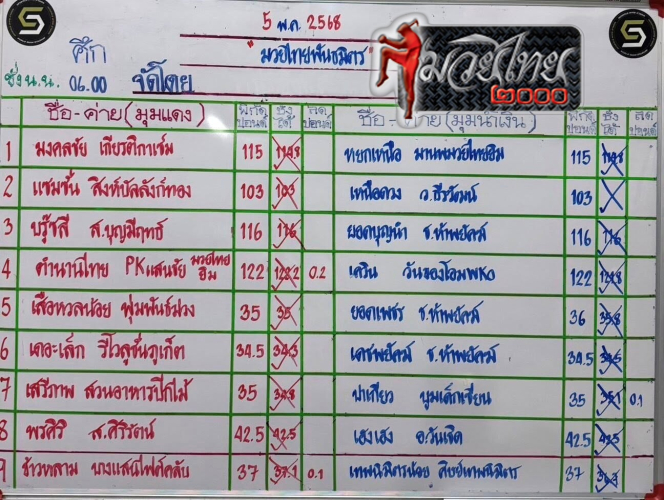 5 พ.ค. 2568
ศึก " มวยไทยพันธมิตร "
มวยไทย
๒๐๐๐
ชั่ง น.น. 06.00 จัดโดย
ชื่อ-ค่าย (มุมแดง) พิกัด ปอนด์ ชั่ง ได้ ลด ปอนด์ (มุมน้ำเงิน) พิกัด ปอนด์ ชั่ง ได้ ลด ปอนด์
1 มงคลชัย เกียรติกาแซ็ม 115 114.8 หยกเหนือ มานพมวยไทยยิม 115 114.8
2 แชมชั้น สิงห์บัลลังก์ทอง 103 103 เหนือดวง ว.ธีรวัฒน์ 103
3 บรู๊ซลี ส.บุญมีฤทธิ์ 116 116 ยอดบุญนำ ช.ห้าพยัคฆ์ 116 116
4 ตำนานไทย PKแสนชัย มวยไทย ยิม 122 122.2 0.2 เควิน วันของโอมWKO 122 121.8
5 เสือหวลน้อย พุ่มพันธ์ม่วง 35 35 ยอดเพชร ช.ห้าพยัคฆ์ 36 35.8
6 เดอะเล็ก รีโวลูชั่นภูเก็ต 34.5 34.3 เดชพยัคฆ์ ช.ห้าพยัคฆ์ 34.5 34.5
7 เสรีภาพ สวนอาหารปีกไม้ 35 34.8 ฟ้าเกียว บูมเด็กเซียน 35 35.1 0.1
8 พรศิริ ส.ศิริรัตน์ 42.5 42.5 เฮงเฮง อ.วันเจิด 42.5 42.5
9 ข้าวหลาม นางแสนไฟต์คลับ 37 37.1 0.1 เทพนิมิตรน้อย ศิษย์เทพนิมิตร 37